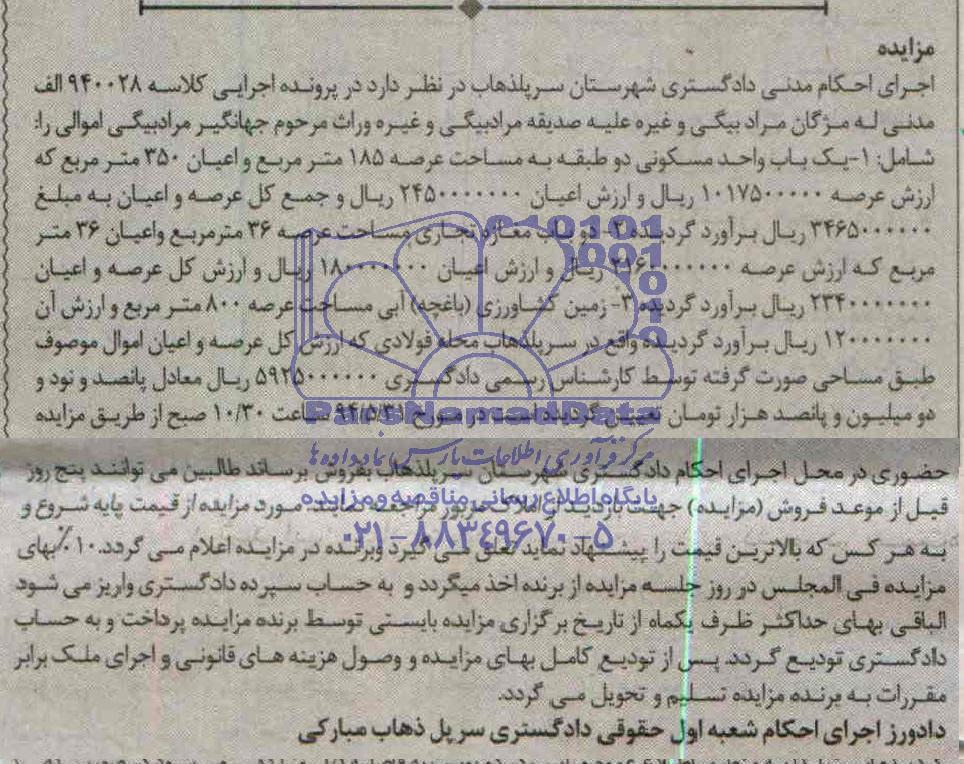 مزایده
اجرای احکام مدنی دادگستری شهرستان سرپلذهاب در نظر دارد در پرونده اجرایی کلاسه ۹۴۰۰۲۸ الف
مدنی له مژگان مراد بیگی و غیره علیه صدیقه مرادبیگی و غیره وراث مرحوم جهانگیر مرادبیگی اموالی را:
شامل: ۱-یک باب واحد مسکونی دو طبقه به مساحت عرصه ۱۸۵ متر مربع و اعیان ۳۵۰ متر مربع که
ارزش عرصه ۱۰۱۷۵۰۰۰۰۰ ریال و ارزش اعیان ۲۴۵۰۰۰۰۰۰۰ ریال و جمع کل عرصه و اعیان به مبلغ
ریال برآورد گردیده ۲- دو باب مغازه تجاری مساحت عرصه ۳۶ مترمربع واعیان ۳۶ متر
مربع که ارزش عرصه ریال و ارزش اعیان ریال و ارزش کل عرصه و اعیان
ریال برآورد گردیده ۳- زمین کشاورزی (باغچه) آبی مساحت عرصه ۸۰۰ متر مربع و ارزش آن
ریال برآورد گردیده واقع در سرپلذهاب محله فولادی که ارزش کل عرصه و اعیان اموال موصوف
طبق مساحی صورت گرفته توسط کارشناس رسمی دادگستری ۵۹۲۵۰۰۰۰۰۰ ریال معادل پانصد و نود و
دو میلیون و پانصد هزار تومان تعیین گردیده است در مورخ ۹۴/۵/۳۱ ساعت ۱۰/۳۰ صبح از طریق مزایده
حضوری در محل اجرای احکام دادگستری شهرستان سرپلذهاب بفروش برساند طالبین می توانند پنج روز
قبل از موعد فروش (مزایده) جهت بازدید از املاک مزبور مراجعه نمایند. مورد مزایده از قیمت پایه شروع و
به هر کس که بالاترین قیمت را پیشنهاد نماید تعلق می گیرد وبرنده در مزایده اعلام می گردد.۱۰٪بهای
مزایده فی المجلس در روز جلسه مزایده از برنده اخذ میگردد و به حساب سپرده دادگستری واریز می شود
الباقی بهای حداکثر ظرف یکماه از تاریخ برگزاری مزایده بایستی توسط برنده مزایده پرداخت و به حساب
دادگستری تودیع گردد. پس از تودیع کامل بهای مزایده و وصول هزینه های قانونی و اجرای ملک برابر
مقررات به برنده مزایده تسلیم و تحویل می گردد.
دادورز اجرای احکام شعبه اول حقوقی دادگستری سرپل ذهاب مبارکی
ParsNamadData
مرکز فرآوری اطلاعات پارس نماد داده ها
پایگاه اطلاع رسانی مناقصه و مزایده
۰۲۱-۸۸۳۴۹۶۷۰-۵